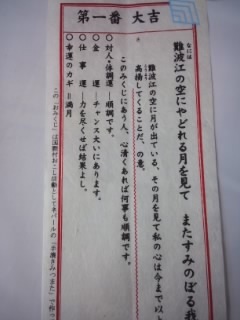 第一番 大吉
なにはえ
難波江の空にやどれる月を見て またすみのぼる我
難波江の空に月が出ている、その月を見て私の心は今まで以
高揚してくることだ、の意。
このみくじにあう人、心清くあれば何事も順調です。
○対人・体調運―順調です。
○金 運―チャンス大いにあります。
○仕事 運―力を尽くせば結果よし。
○幸運のカギ―満月
この「おみくじ」は国際村おこし活動としてネパールの「手漉きみつまた」で作